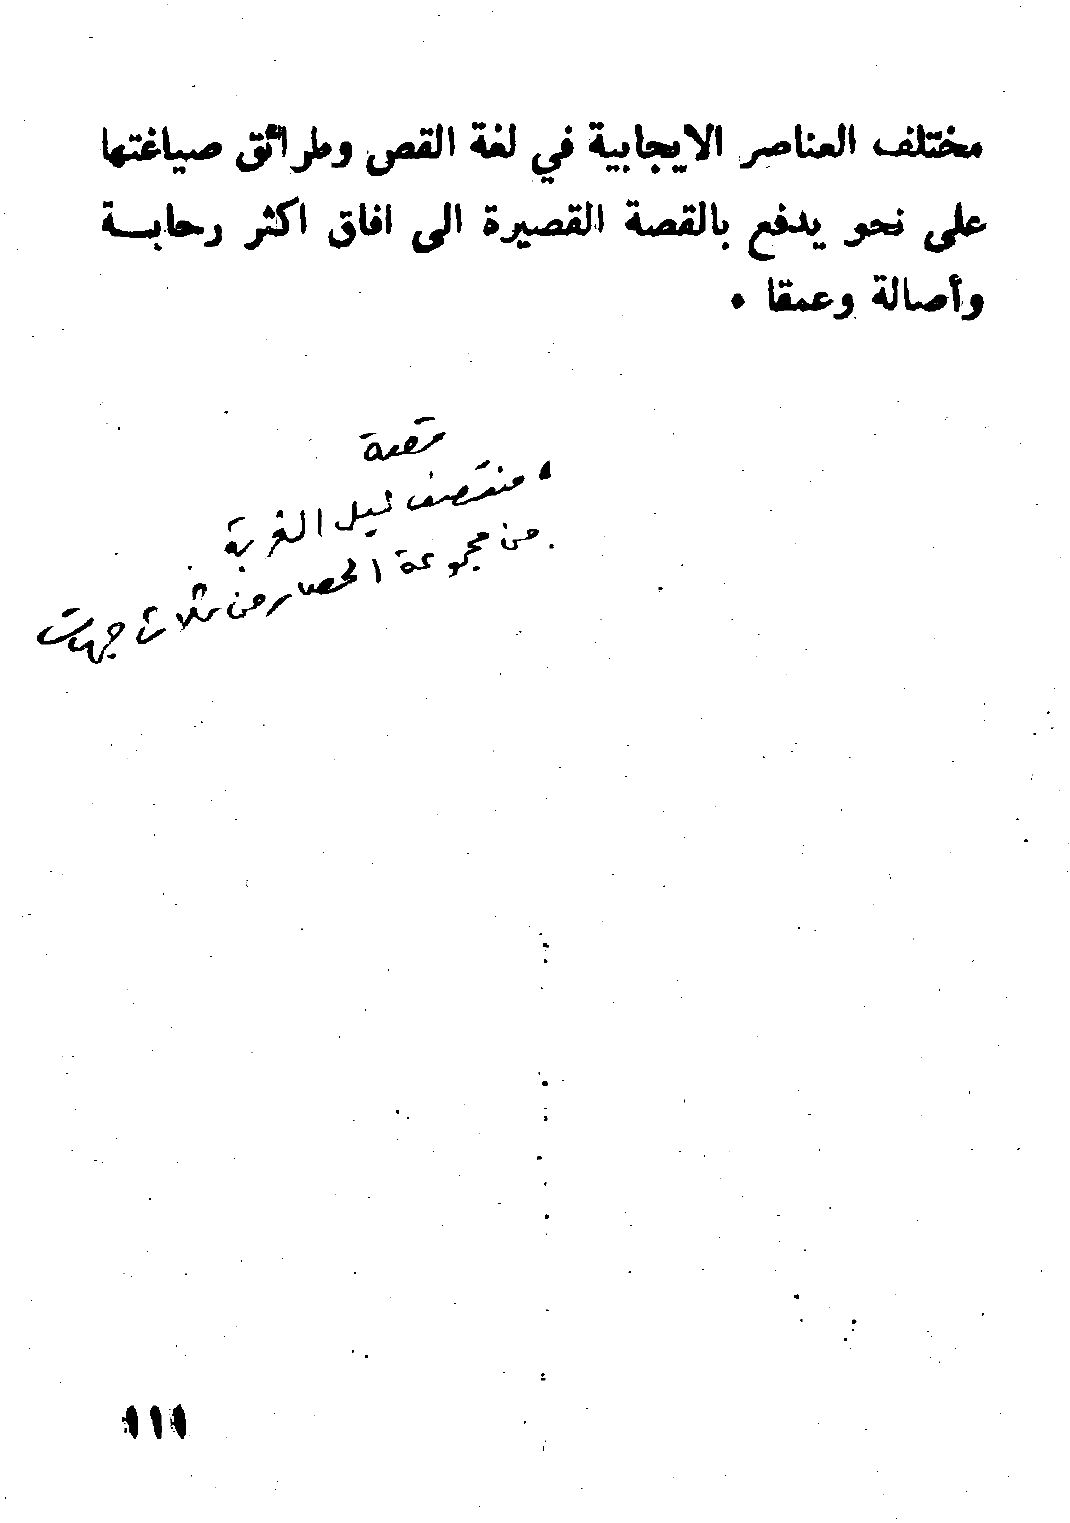 مختلف العناصر الايجابية في لغة القص وطرائق صياغتها
على نحو يدفع بالقصة القصيرة الى افاق اكثر رحابـــة
وأصالة وعمقا ٠
قصة
منتصف ليل الغربة
من مجموعة الحصار من ثلاث جهات
١١١